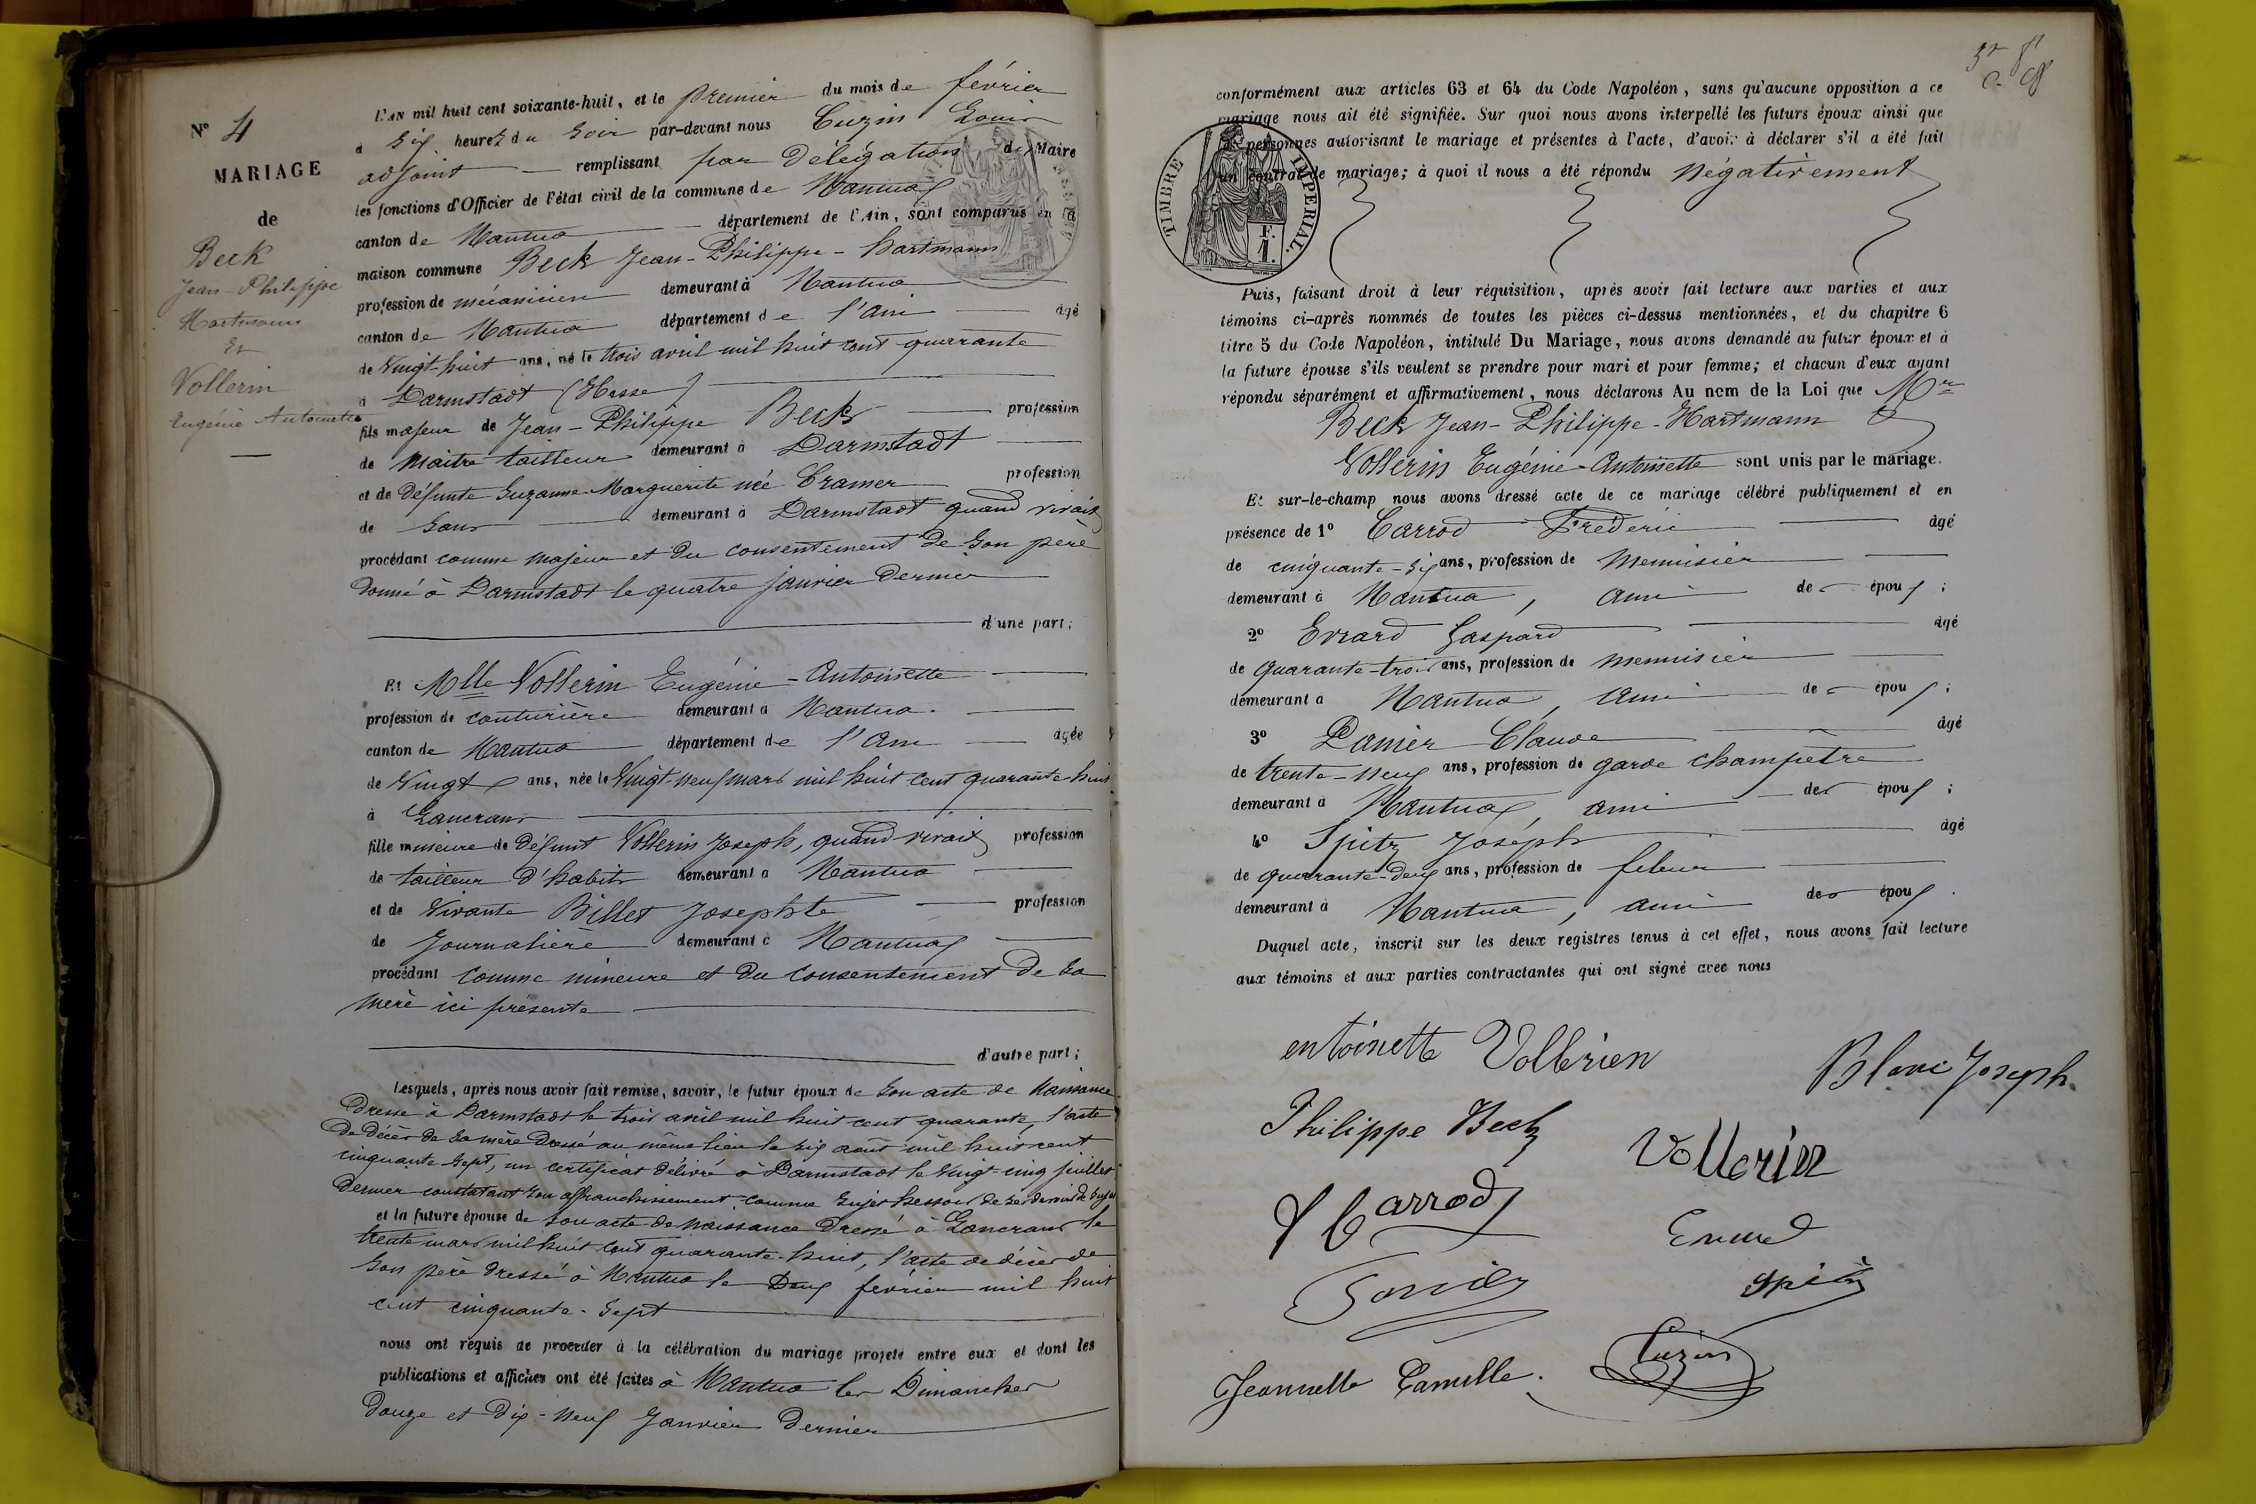 N° 4
MARIAGE
de
Beck
Jean-Philippe
Hartmann
Et
Vollerin
Eugénie Antoinette
L'AN mil huit cent soixante-huit, et le premier du mois de février
à six heures du soir par-devant nous Cuzin Louis
adjoint remplissant par délégation du Maire
les fonctions d'Officier de l'état civil de la commune de Nantua
canton de Nantua département de l'Ain, sont comparus en la
maison commune Beck Jean-Philippe-hartmann
profession de mécanicien demeurant à Nantua
canton de Nantua département de l'Ain âgé
de Vingt-huit ans, né le trois avril mil huit cent quarante
à Darmstadt (Hesse)
fils majeur de Jean-Philippe Beck profession
de Maitre tailleur demeurant à Darmstadt
et de défunte Suzanne-Marguerite née Cramer profession
de sans demeurant à Darmstadt quand vivait
procédant comme majeur et du consentement de son père
donné à Darmstadt le quatre janvier dernier
d'une part;
Et Mlle Vollerin Eugénie-Antoinette
profession de couturière demeurant à Nantua.
canton de Nantua département de l'Ain âgée
de Vingt ans, née le Vingt-neuf mars mil huit cent quarante huit
à Lancrans
fille mineure de défunt Vollerin Joseph, quand vivait profession
de tailleur d'habits demeurant à Nantua
et de vivante Billet Josephte profession
de Journalière demeurant à Nantua
procédant comme mineure et du consentement de sa
mère ici présente
d'autre part;
Lesquels, après nous avoir fait remise, savoir, le futur époux de son acte de naissance
dressé à Darmstadt le trois avril mil huit cent quarante, l'acte
de décès de sa mère dressé au même lieu le six août mil huit cent
cinquante sept, un certificat délivré à Darmstadt le vingt-cinq juillet
dernier constatant son affranchissement comme sujet hessois de ses devoirs de sujet
et la future épouse de son acte de naissance dressé à Lancrans le
trente mars mil huit cent quarante-huit, l'acte de décès de
son père dressé à Nantua le Deux février mil huit
cent cinquante-sept
nous ont requis de procéder à la célébration du mariage projeté entre eux et dont les
publications et affiches ont été faites à Nantua les Dimanches
douze et dix-neuf Janvier dernier
conformément aux articles 63 et 64 du Code Napoléon, sans qu'aucune opposition a ce
mariage nous ait été signifiée. Sur quoi nous avons interpellé les futurs époux ainsi que
personnes autorisant le mariage et présentes à l'acte, d'avoir à déclarer s'il a été fait
un contrat de mariage; à quoi il nous a été répondu négativement
TIMBRE IMPERIAL.
F.
1.
Puis, faisant droit à leur réquisition, après avoir fait lecture aux parties et aux
témoins ci-après nommés de toutes les pièces ci-dessus mentionnées, et du chapitre 6
titre 5 du Code Napoléon, intitulé Du Mariage, nous avons demandé au futur époux et à
la future épouse s'ils veulent se prendre pour mari et pour femme; et chacun d'eux ayant
répondu séparément et affirmativement, nous déclarons Au nom de la Loi que Mr
Beck Jean-Philippe-Hartmann &
Vollerin Eugénie-Antoinette sont unis par le mariage.
Et sur-le-champ nous avons dressé acte de ce mariage célébré publiquement et en
présence de 1° Carrod Fréderic âgé
de cinquante-six ans, profession de Menuisier
demeurant à Nantua, ami des époux;
2° Evrard Gaspard âgé
de quarante-trois ans, profession de menuisier
demeurant à Nantua, ami des époux;
3° Panier Claude âgé
de trente-neuf ans, profession de garde champêtre
demeurant à Nantua, ami des époux;
4° Spitz Joseph âgé
de quarante-deux ans, profession de fileur
demeurant à Nantua, ami des époux.
Duquel acte, inscrit sur les deux registres tenus à cet effet, nous avons fait lecture
aux témoins et aux parties contractantes qui ont signé avec nous
entoinette Vollerien
Blanc Joseph
Philippe Beck
Vollerin
Carrod
Evrard
Spitz
Cuzin
Jeannette Camille.